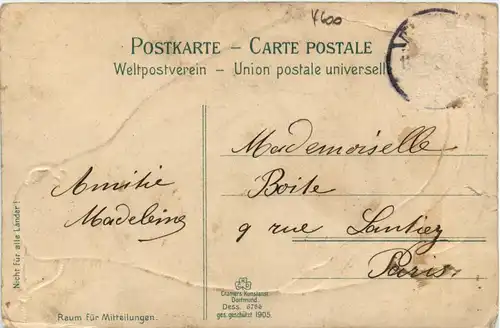 4600
POSTKARTE – CARTE POSTALE
Weltpostverein – Union postale universelle
Amitié
Madeleine
Mademoiselle
Boite
9 rue Lantiez
Paris.
Nicht für alle Länder!
Raum für Mitteilungen.
Cramers Kunstanst.
Dortmund.
Dess.
ges. geschützt 1905.